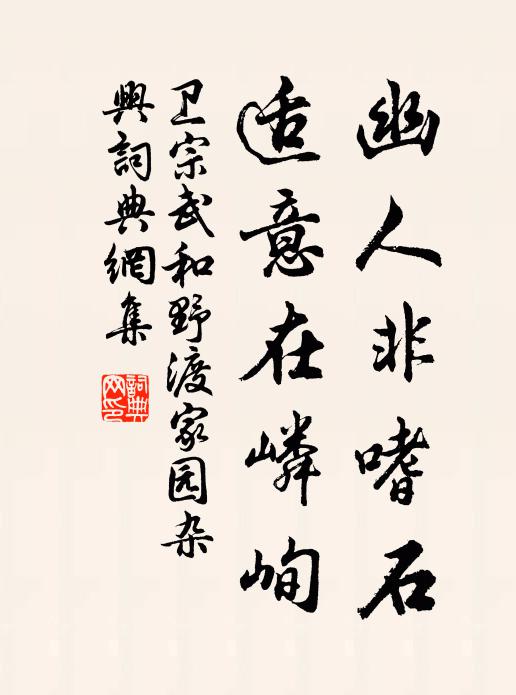 幽人非嗜石
适意在嶙峋
卫宗武和野渡家园杂
興詞典網集
詞典网印